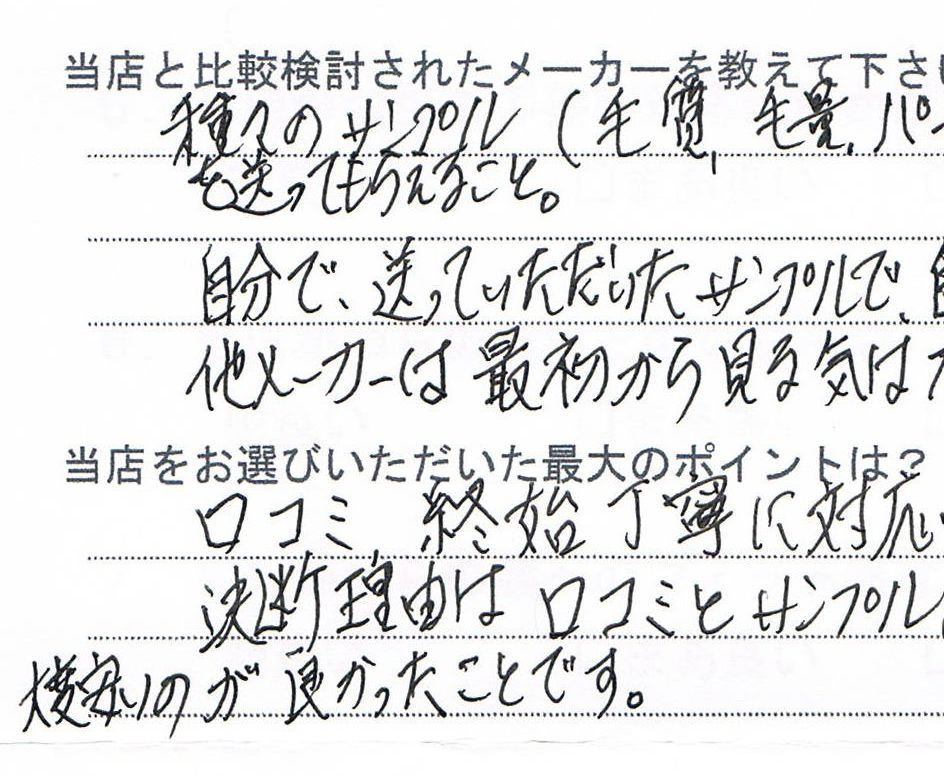 当店と比較検討されたメーカーを教えて下さい
種々のサンプル(毛質,毛量,パ
を送ってもらえること。
自分で、送っていただいたサンプルで、自
他メーカーは最初から見る気は
当店をお選びいただいた最大のポイントは?
口コミ 終始丁寧に対応
決断理由は口コミとサンプル
のが良かったことです。